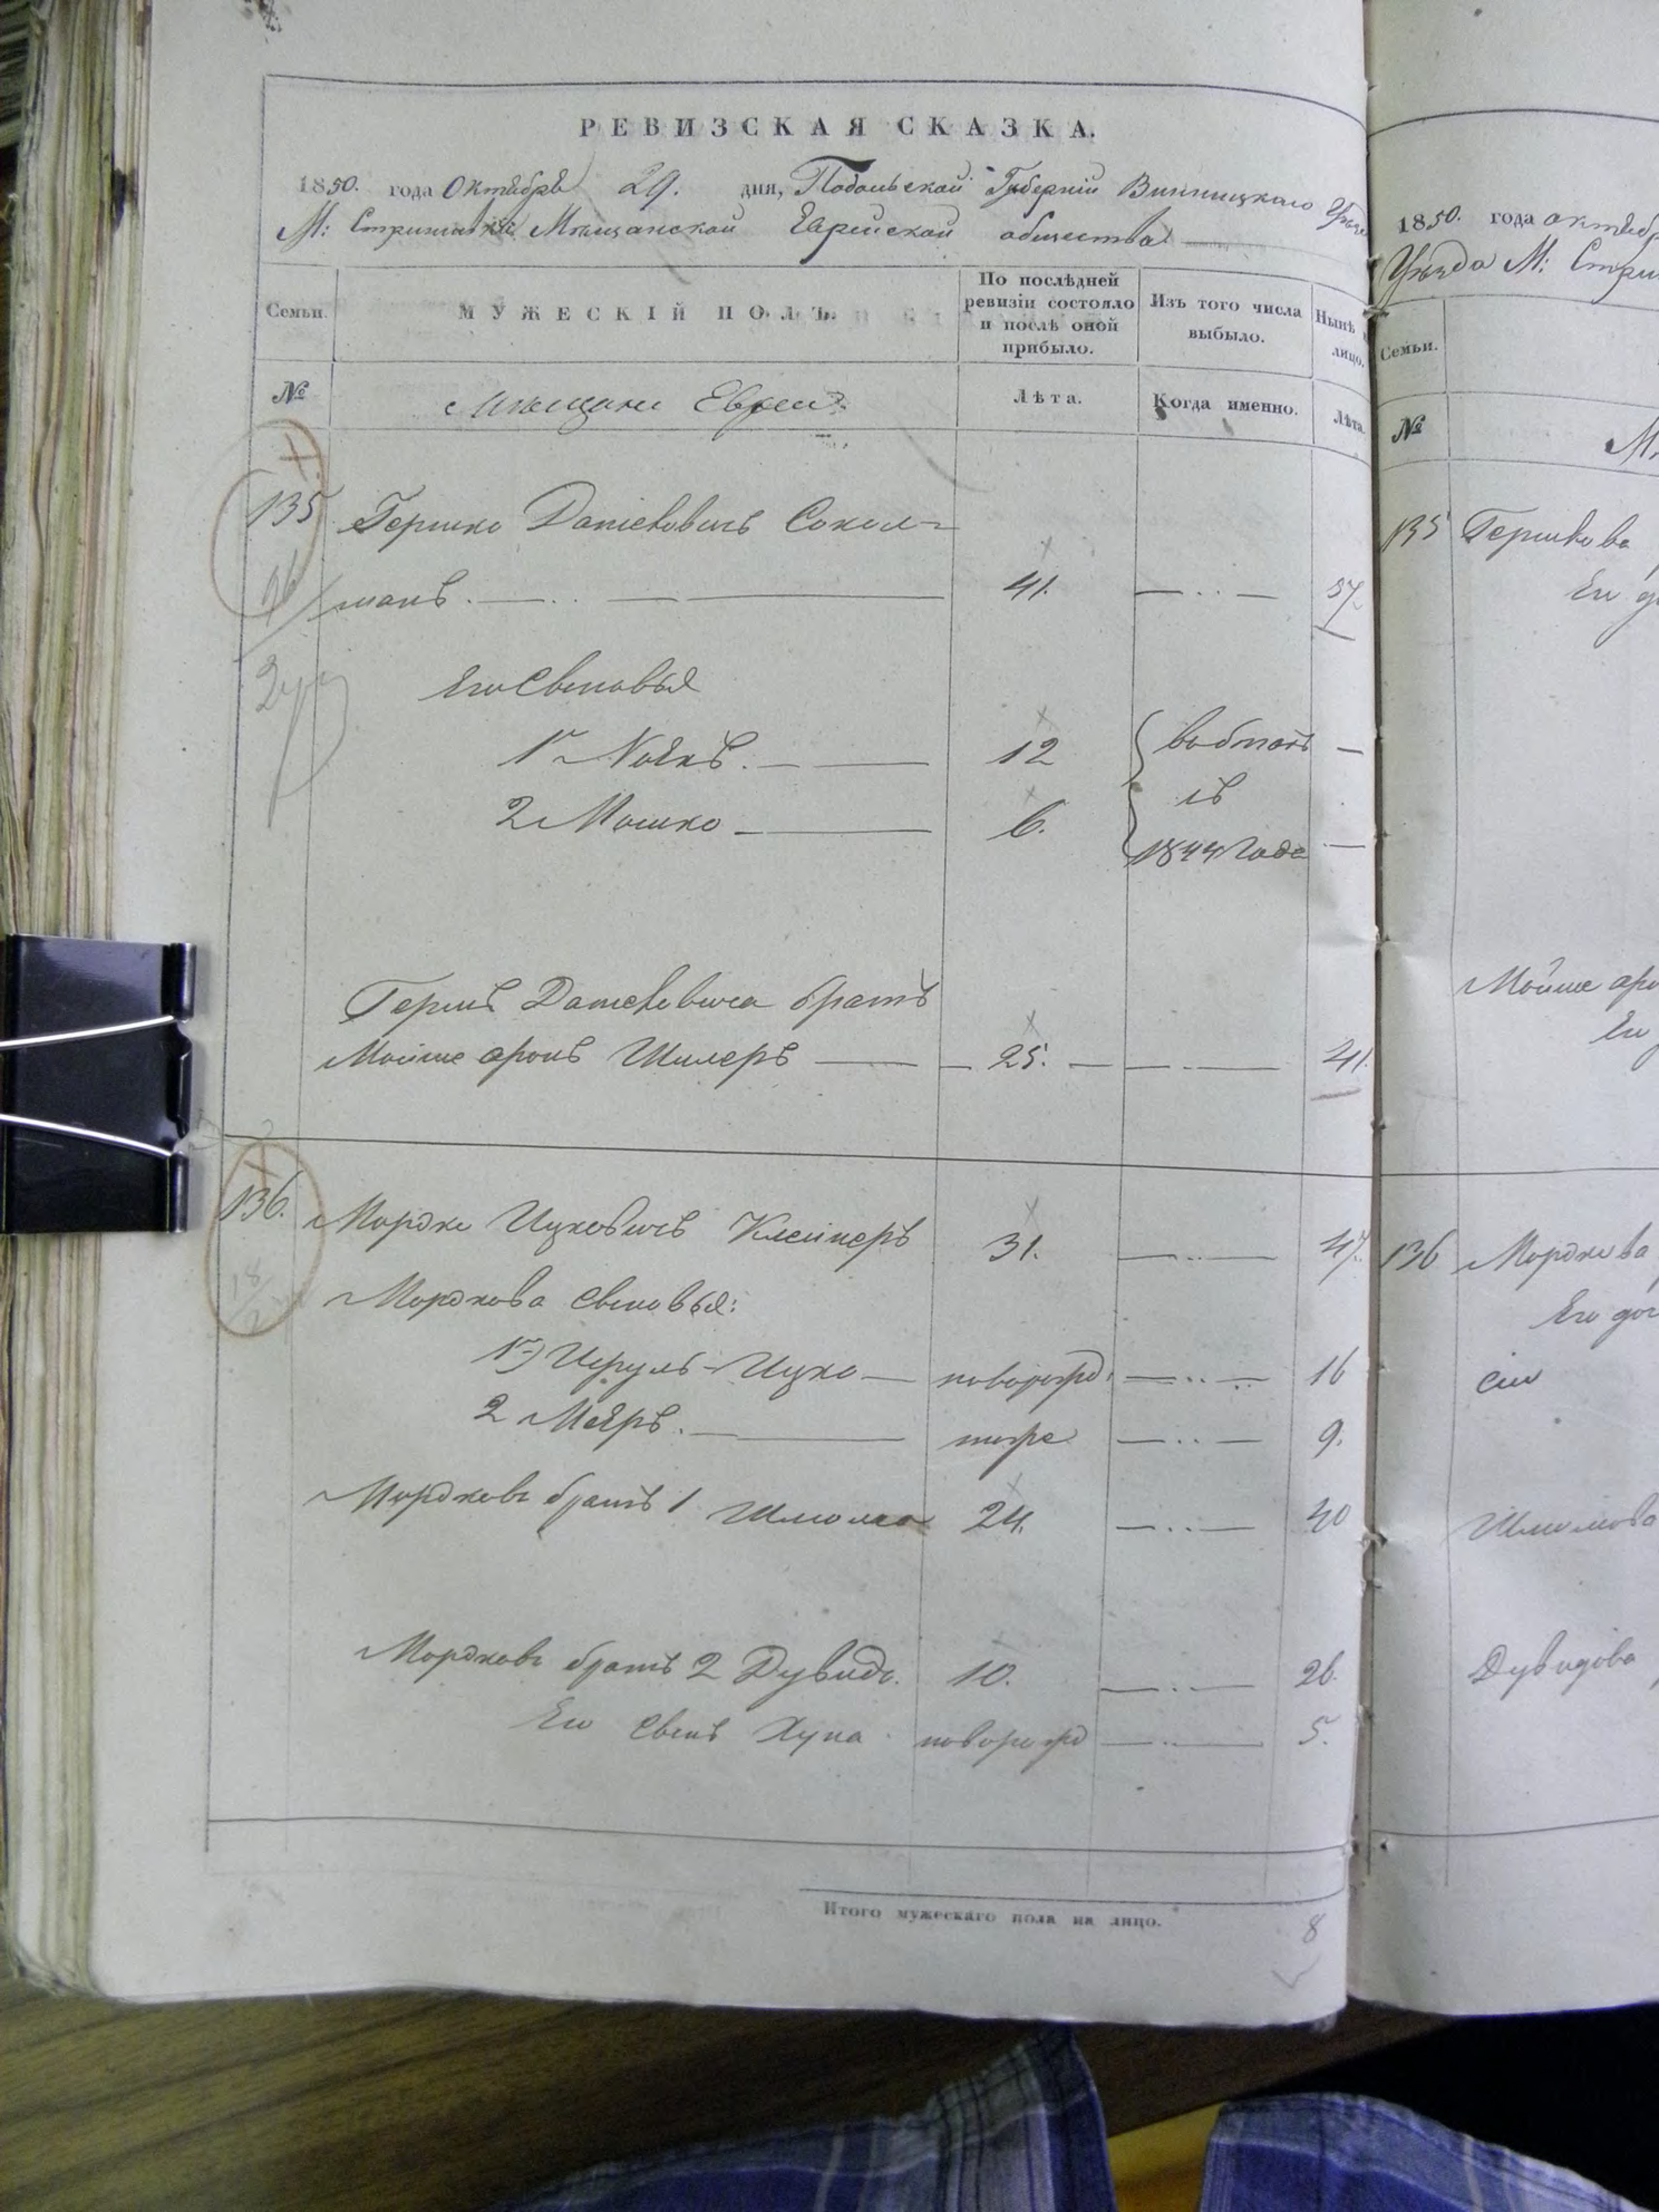 РЕВИЗСКАЯ СКАЗКА.
1850. года Октября 29. дня, Подольской Губерніи Винницкаго Уѣзда
М: Стрижавки Мѣщанской Еврейской общества
Семьи.
МУЖЕСКІЙ ПОЛЪ.
По послѣдней ревизіи состояло и послѣ оной прибыло.
Изъ того числа выбыло.
Нынѣ
лицо.
№
Мѣщане Евреи
Лѣта.
Когда именно.
Лѣта.
135 Гершко Даніеловичь Сокол=
манъ. 41. 57.
Его Сыновья
1й Хаямъ. 12
2 Мошко 6.
въ
1844 Года
Герша братъ
Мойше аронъ Шилеръ 25. 41.
136. Мордко Ицковичъ Клейнеръ 31. 47.
Мордкова Сыновья:
1й Исруль-Ицко новорожд: 16
2 Меяръ. тоже 9.
Мордковъ братъ 1 Шлиома 24. 40
Мордковъ братъ 2 Дувидъ. 10. 26.
Его Сынъ Хуна новорожд 5.
Итого мужескаго пола на лицо. 8
1850. года октяб
Уѣзда М: Стри
Семьи.
№
М
135 Гершкова
Ег
Мойше аро
Ег
136 Мордкова
Его доч
Шлиомова
Дувидова